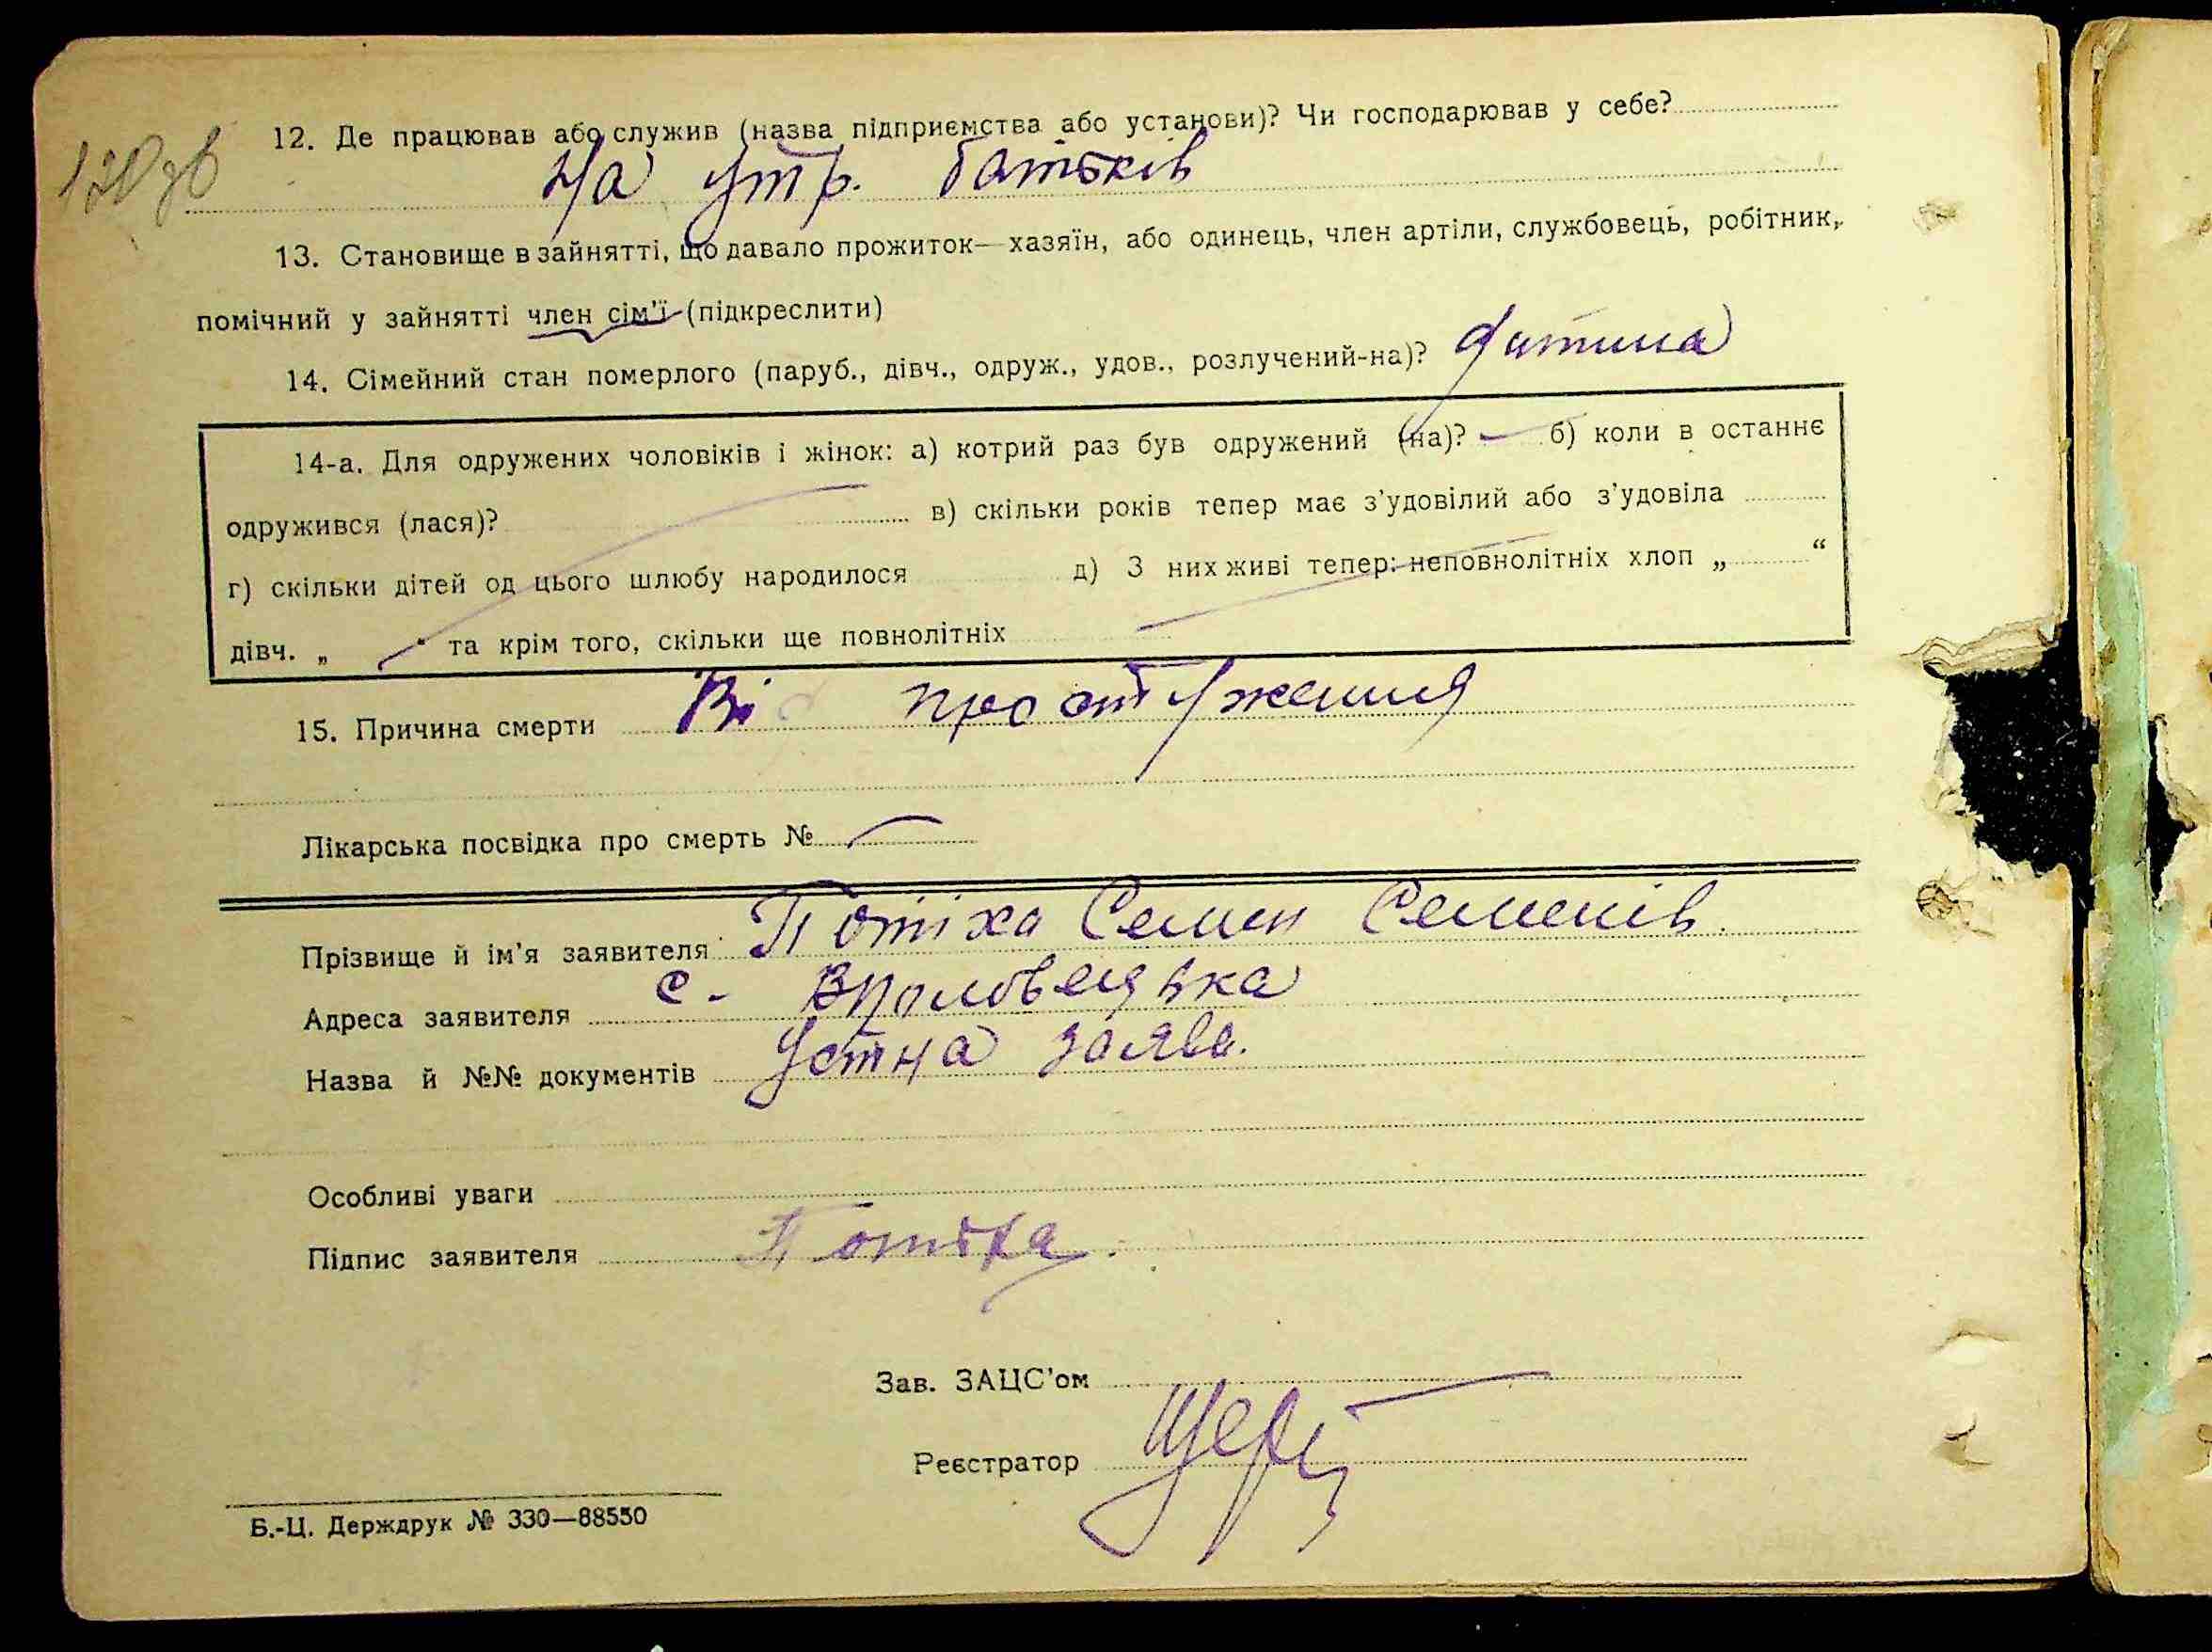 120зв
12. Де працював або служив (назва підприємства або установи)? Чи господарював у себе?
На утр. батьків
13. Становище в зайнятті, що давало прожиток—хазяїн, або одинець, член артіли, службовець, робітник,
помічний у зайнятті член сім'ї (підкреслити)
14. Сімейний стан померлого (паруб., дівч., одруж., удов., розлучений-на)? дитина
14-а. Для одружених чоловіків і жінок: а) котрий раз був одружений (на)? — б) коли в останнє
одружився (лася)? в) скільки років тепер має з'удовілий або з'удовіла
г) скільки дітей од цього шлюбу народилося д) З них живі тепер: неповнолітніх хлоп „ “
дівч. „ “ та крім того, скільки ще повнолітніх
15. Причина смерти Від простуження
Лікарська посвідка про смерть № —
Прізвище й ім'я заявителя Потіха Семен Семенів
Адреса заявителя с.
Назва й №№ документів Устна заява.
Особливі уваги
Підпис заявителя Потіха
Зав. ЗАЦС'ом
Реєстратор
Б.-Ц. Держдрук № 330—88550